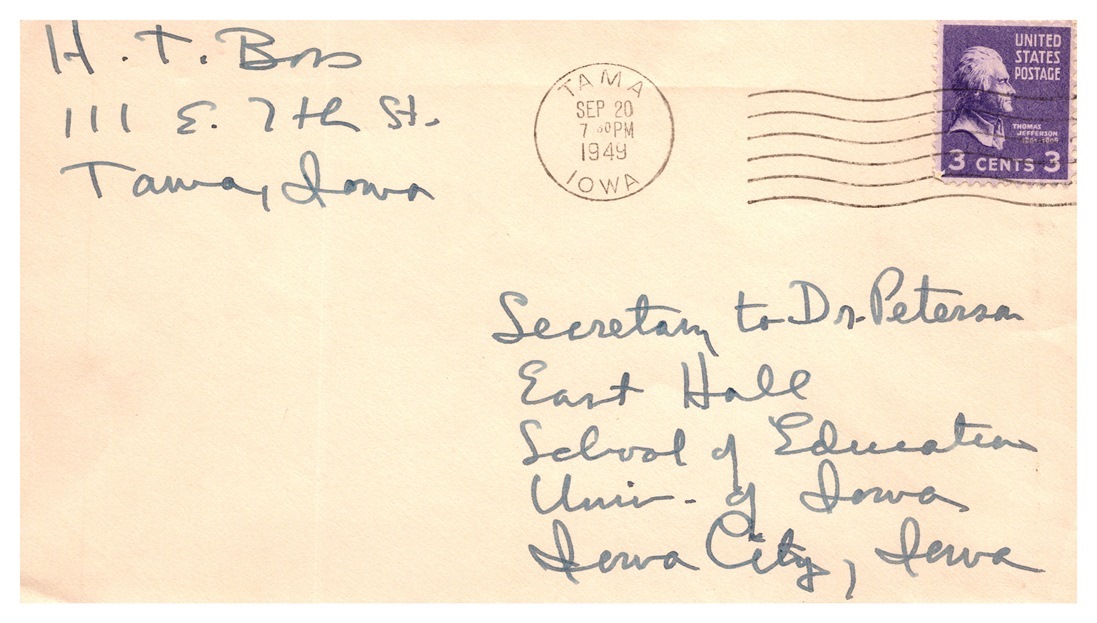 H. T.
111 E. 7th St.
Tama, Iowa
TAMA
SEP 20
7 30 PM
1949
IOWA
UNITED
STATES
POSTAGE
THOMAS
JEFFERSON
3 CENTS 3
Secretary to Dr. Peterson
East Hall
School of Education
Univ. of Iowa
Iowa City, Iowa